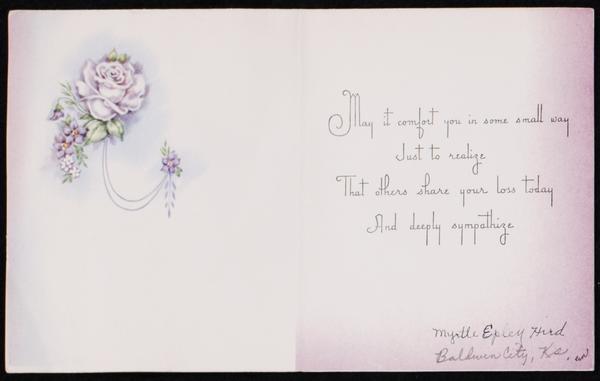 May it comfort you in some small way
Just to realize
That others share your loss today
And deeply sympathize
Myrtle Epley Hird
Baldwin City, Ks.